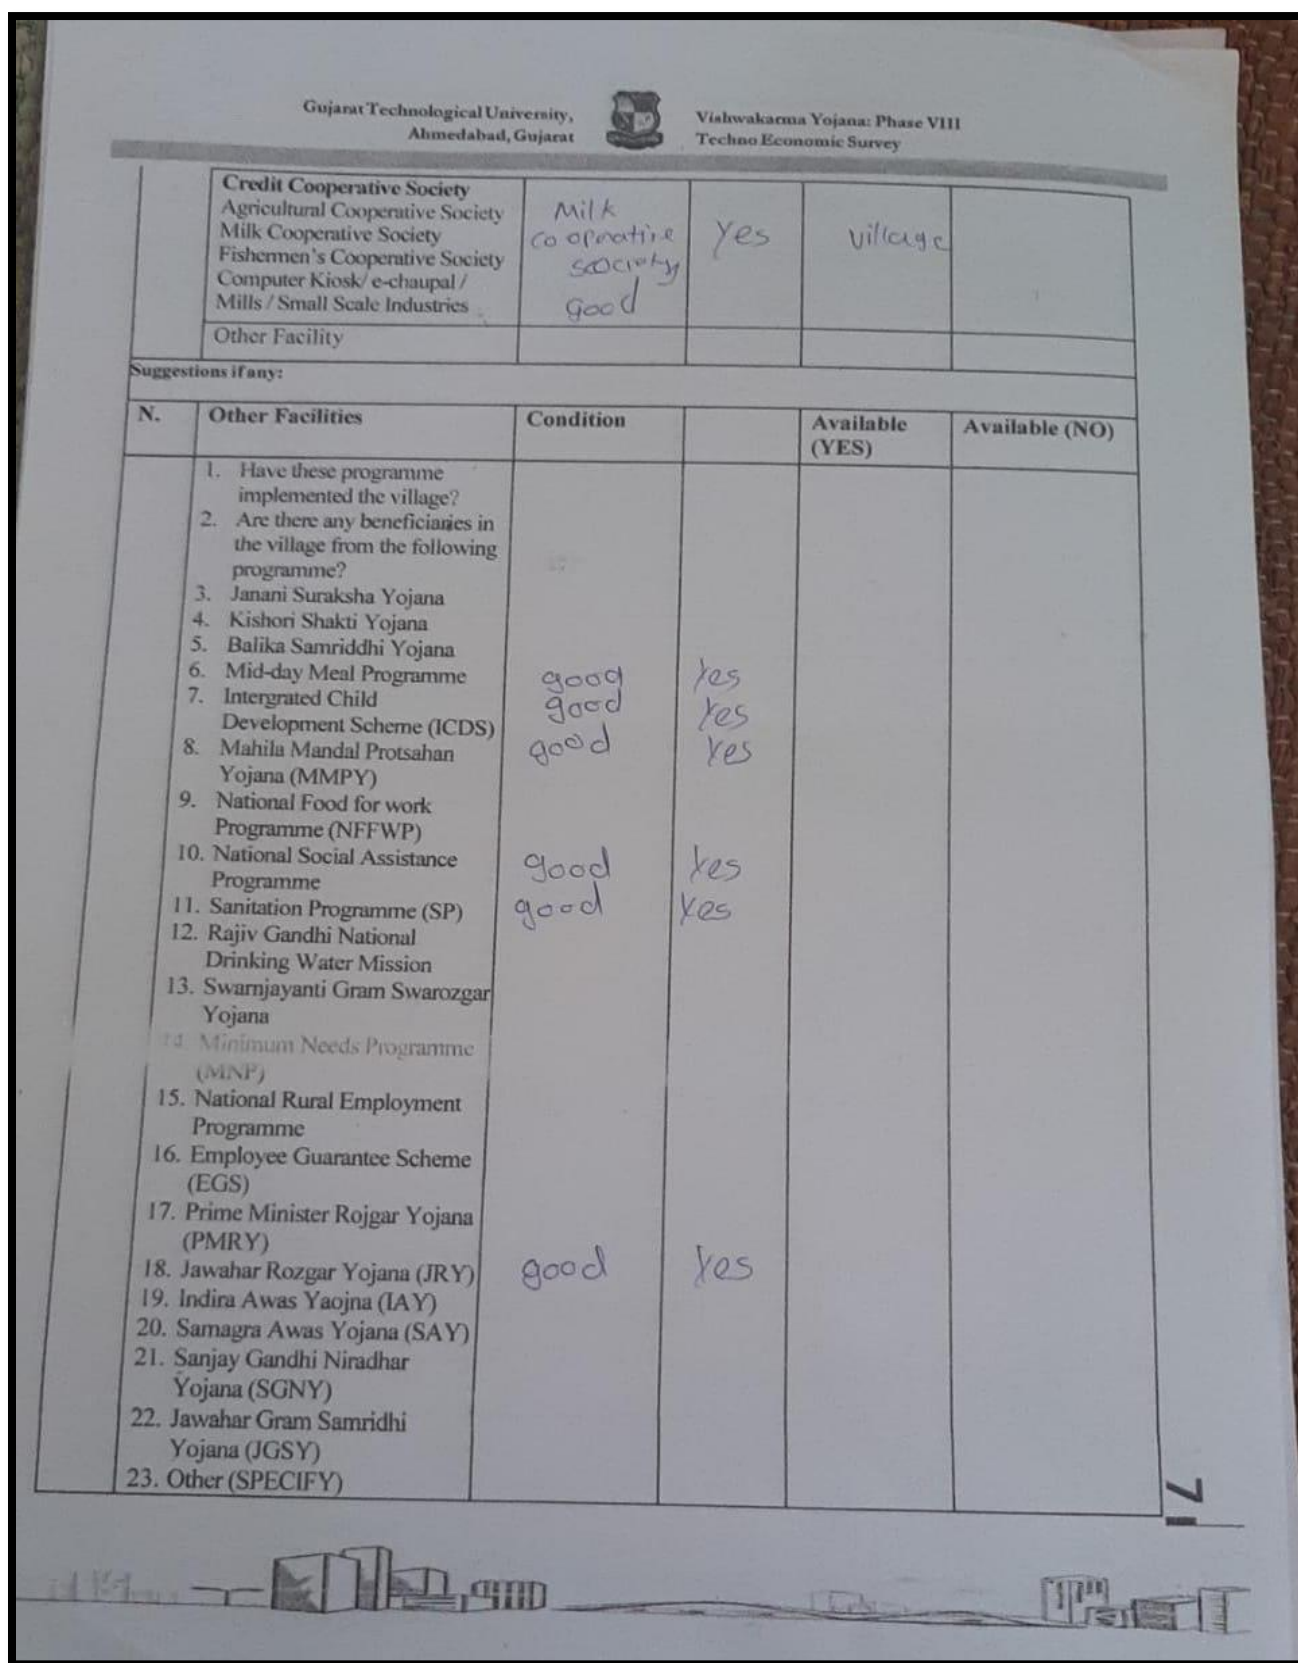 Gujarat Technological University,
Ahmedabad, Gujarat
Vishwakarma Yojana: Phase VIII
Techno Economic Survey
Credit Cooperative Society
Agricultural Cooperative Society
Milk Cooperative Society
Fishermen's Cooperative Society
Computer Kiosk/ e-chaupal /
Mills / Small Scale Industries
Milk
cooprative
society
good
Yes
village
Other Facility
Suggestions if any:
N. Other Facilities Condition Available (YES) Available (NO)
1. Have these programme
implemented the village?
2. Are there any beneficiaries in
the village from the following
programme?
3. Janani Suraksha Yojana
4. Kishori Shakti Yojana
5. Balika Samriddhi Yojana
6. Mid-day Meal Programme good Yes
7. Intergrated Child good Yes
Development Scheme (ICDS)
8. Mahila Mandal Protsahan good Yes
Yojana (MMPY)
9. National Food for work
Programme (NFFWP)
10. National Social Assistance good Yes
Programme
11. Sanitation Programme (SP) good Yes
12. Rajiv Gandhi National
Drinking Water Mission
13. Swarnjayanti Gram Swarozgar
Yojana
14. Minimum Needs Programme
(MNP)
15. National Rural Employment
Programme
16. Employee Guarantee Scheme
(EGS)
17. Prime Minister Rojgar Yojana
(PMRY)
18. Jawahar Rozgar Yojana (JRY) good Yes
19. Indira Awas Yaojna (IAY)
20. Samagra Awas Yojana (SAY)
21. Sanjay Gandhi Niradhar
Yojana (SGNY)
22. Jawahar Gram Samridhi
Yojana (JGSY)
23. Other (SPECIFY)
7